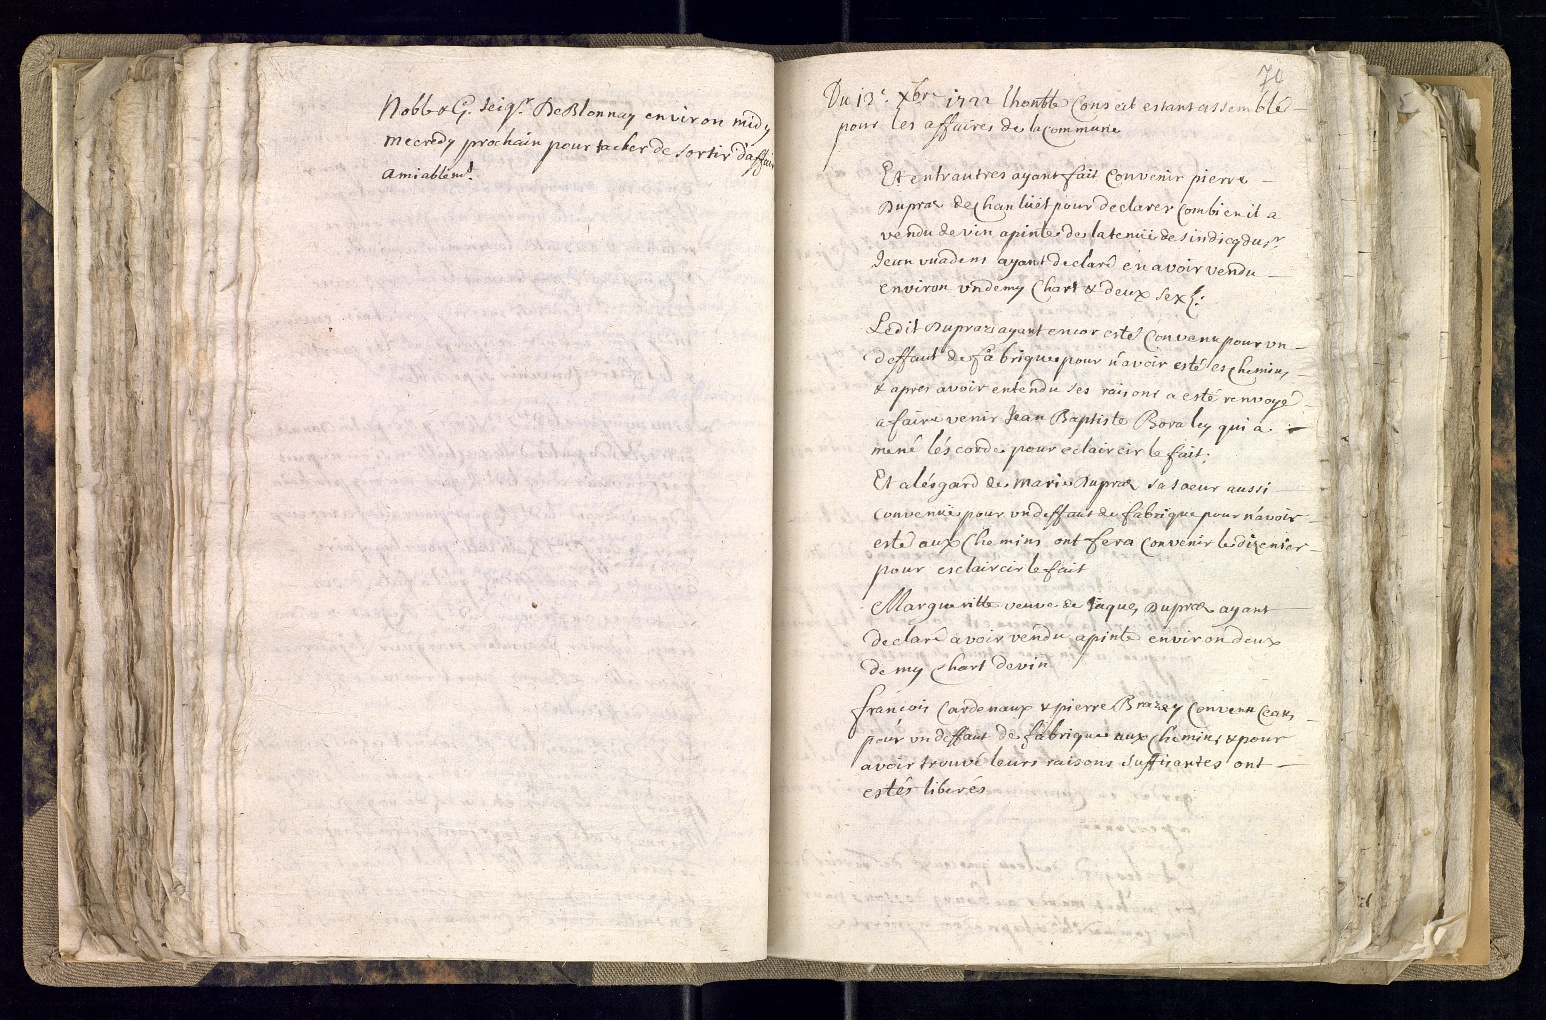 Noble & G. Seigr. De Blonnay environ midy
mecredy prochain pour tacher de sortir d'affair
amiablemt.
70
Du 13e. Xbre 1722 lhonble Conseil estant assemblé
pour les affaires de la Commune
Et entrautres ayant fait Convenir pierre
Dupraz de Chanliét pour declarer Combien il a
vendu de vin a pinte des la tenue de sindicq du Sr.
Jean vuadens ayant declaré en avoir vendu
environ vn demy Chart & deux Sext:
Ledit Dupraz ayant encor esté Convenu pour vn
deffaut de fabrique pour n'avoir esté es Chemins
& apres avoir entendu ses raisons a esté renvoyé
a faire venir Jean Baptiste Boraley qui a
mené les corde pour eclaircir le fait;
Et a l'ésgard de Marie Dupraz sa soeur aussi
convenue pour vn deffaut de fabrique pour n'avoir
esté aux Chemins ont fera Convenir le dizenier
pour esclaircir le fait
Margueritte veuve de Jaques Dupraz ayant
declaré avoir vendu a pinte environ deux
de my Chart de vin
françois Cardenaux & pierre Brazey Convenu Ceans
pour vn deffaut de fabrique aux Chemins & pour
avoir trouvé leurs raisons suffisantes ont
estés liberés